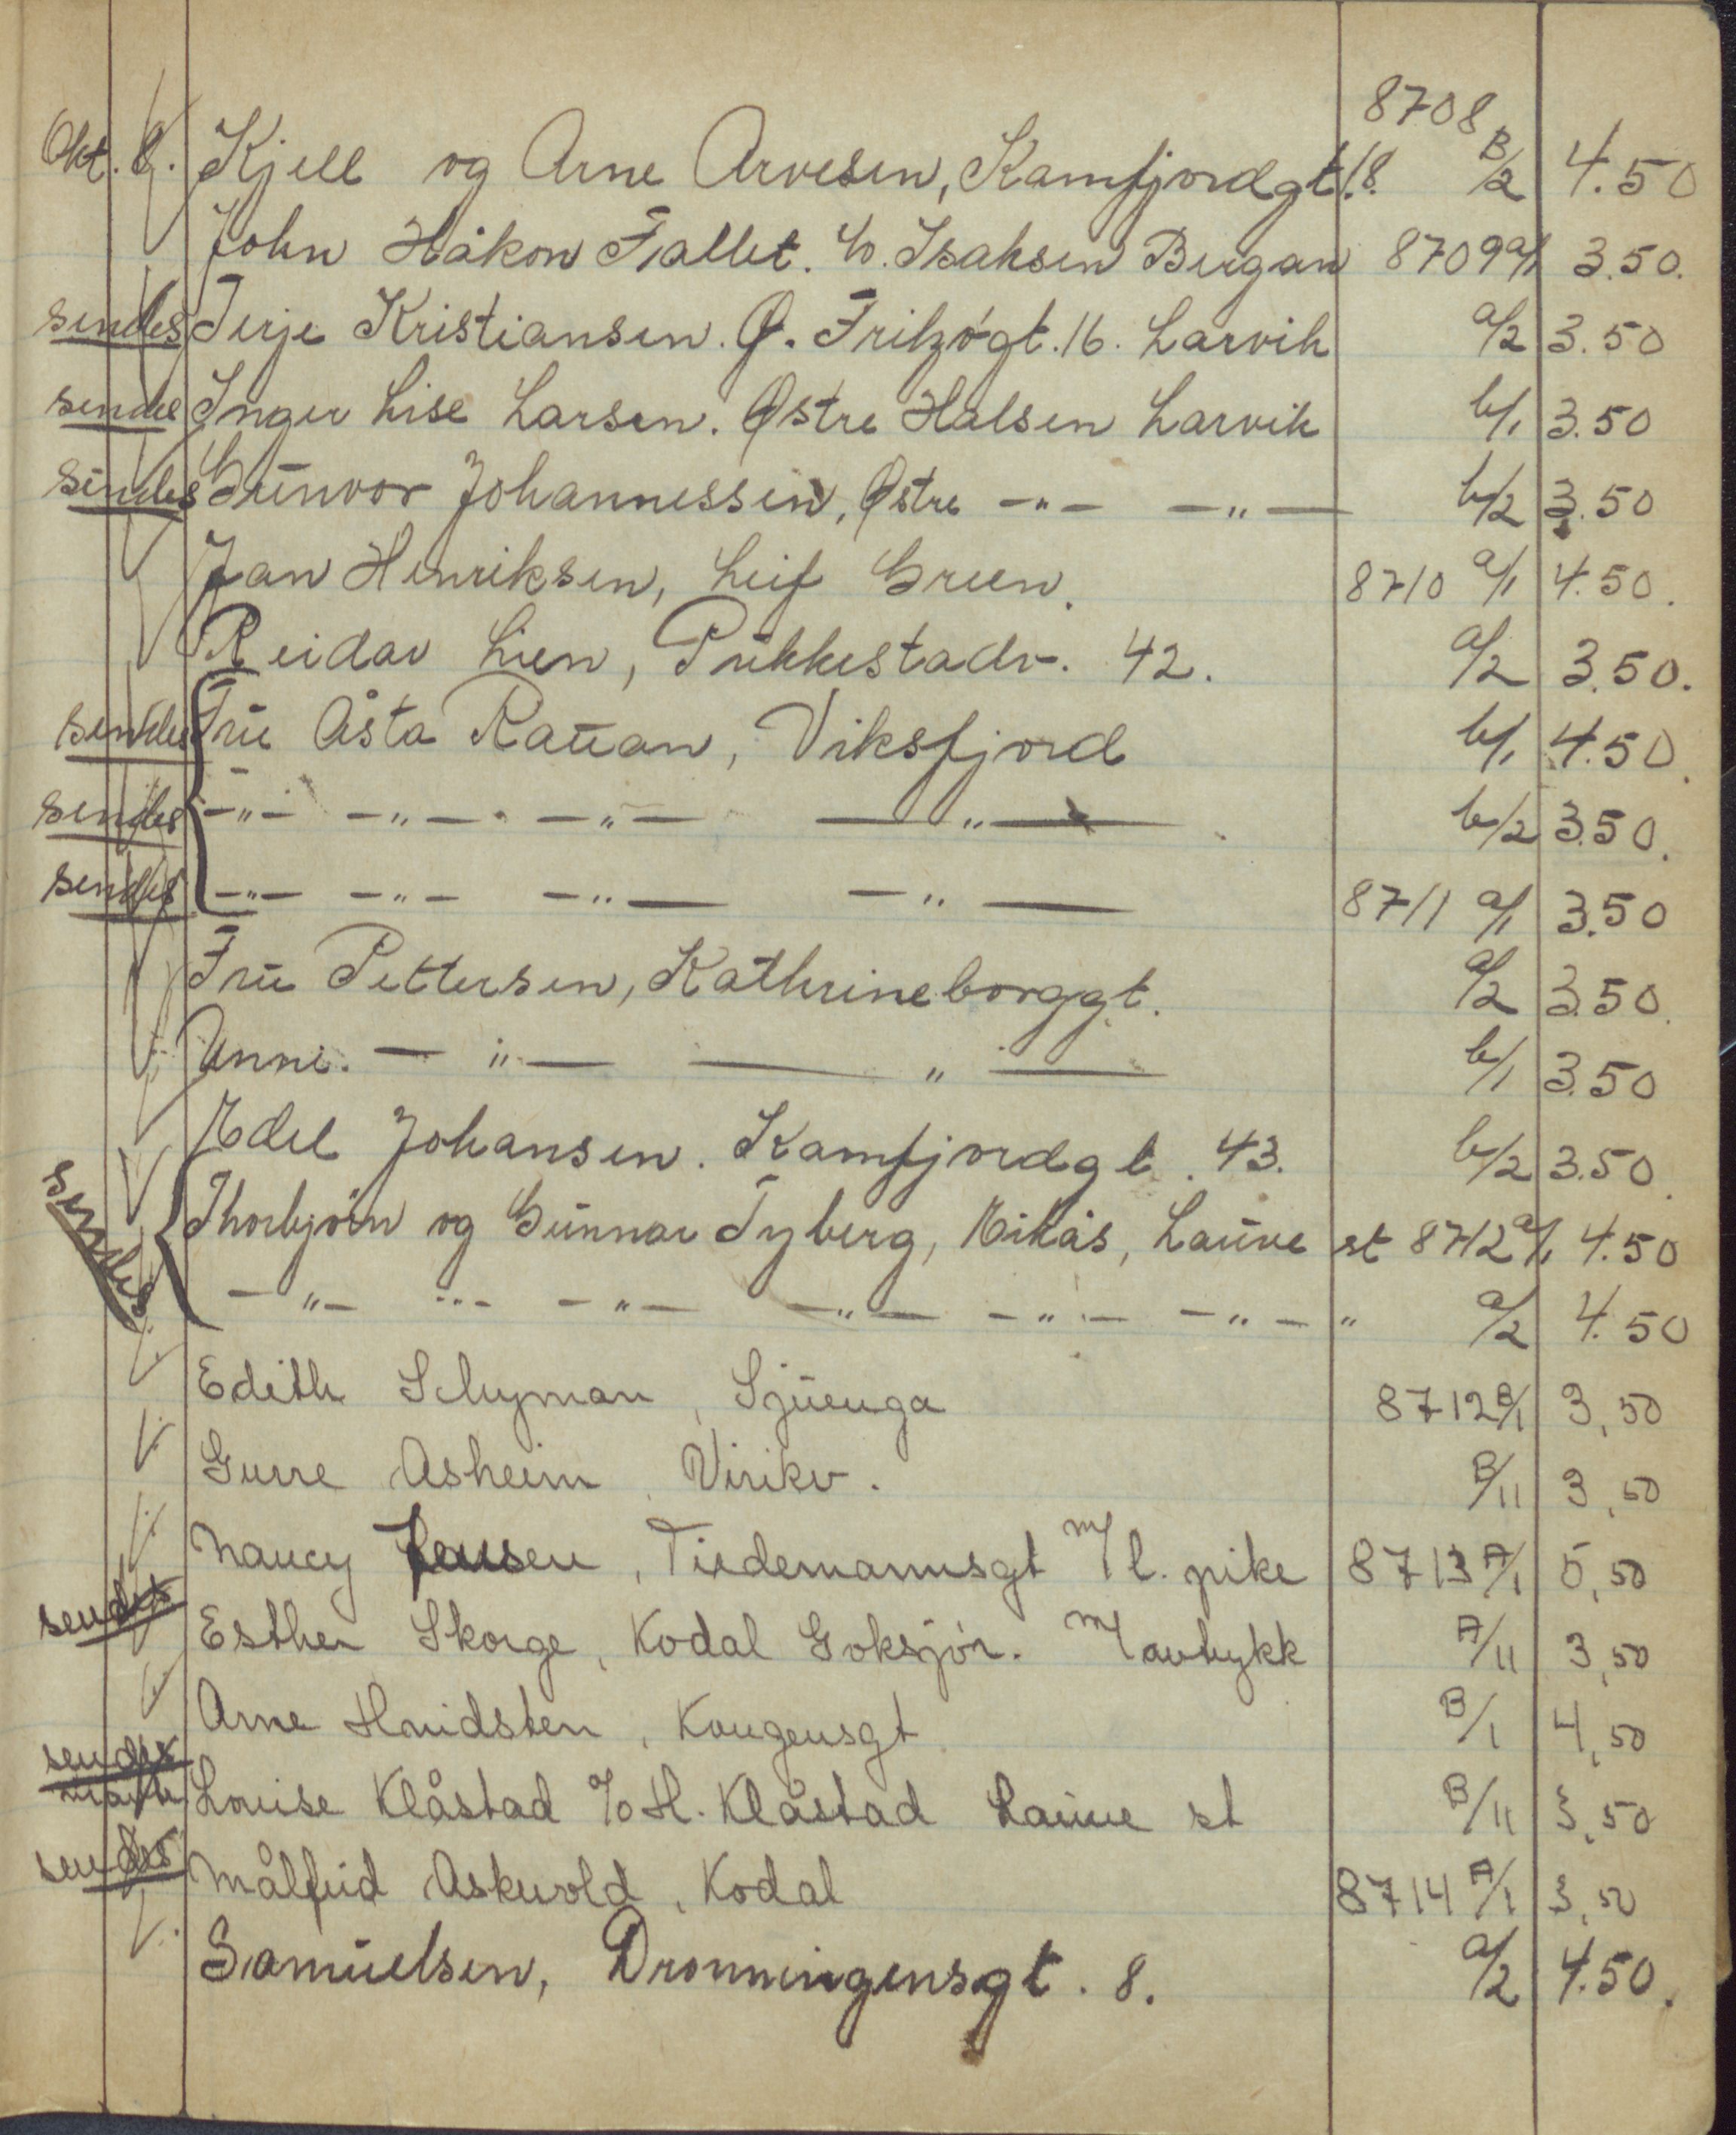 8708
Okt. 8. Kjell og Arne Arvesen, Kamfjordgt. 18. B/2 4.50
John Håkon Fallet. c/o. Isaksen Bergan 8709 a/1 3.50.
sendes Terje Kristiansen. Ø. Fritzøgt. 16. Larvik a/2 3.50
sendes Inger Lise Larsen. Østre Halsen Larvik b/1 3.50
sendes Gunvor Johannessen, Østre -"- -"- b/2 3.50
Jan Henriksen, Leif Green. 8710 a/1 4.50.
Reidar Lien, Pukkestadv. 42. a/2 3.50.
sendes Fru Åsta Rauan, Viksfjord b/1 4.50.
sendes -"- -"- -"- -"- b/2 3.50.
sendes -"- -"- -"- -"- 8711 a/1 3.50
Fru Pettersen, Kathrineborggt. a/2 3.50.
Unni. -"- -"- b/1 3.50
Edel Johansen. Kamfjordgt. 43. b/2 3.50.
sendes Thorbjörn og Gunnar Tyberg, Eikås, Lauve st 8712 a/1 4.50
-"- -"- -"- -"- -"- -"- " a/2 4.50
Edith Schyman, Sjuenga 8712 B/1 3,50
Gurre Asheim, Virikv. B/11 3,50
Nancy Jensen, Tiedemannsgt m/ l. pike 8713 A/1 5,50
sendes Esther Skorge, Kodal Goksjør. m/ avtrykk A/11 3,50
Arne Hvidsten, Kongensgt B/1 4,50
sendes Louise Klåstad c/o H. Klåstad Lauve st B/11 3,50
sendes Målfrid Askevold, Kodal 8714 A/1 3,50
Samuelsen, Dronningensgt. 8. a/2 4.50.